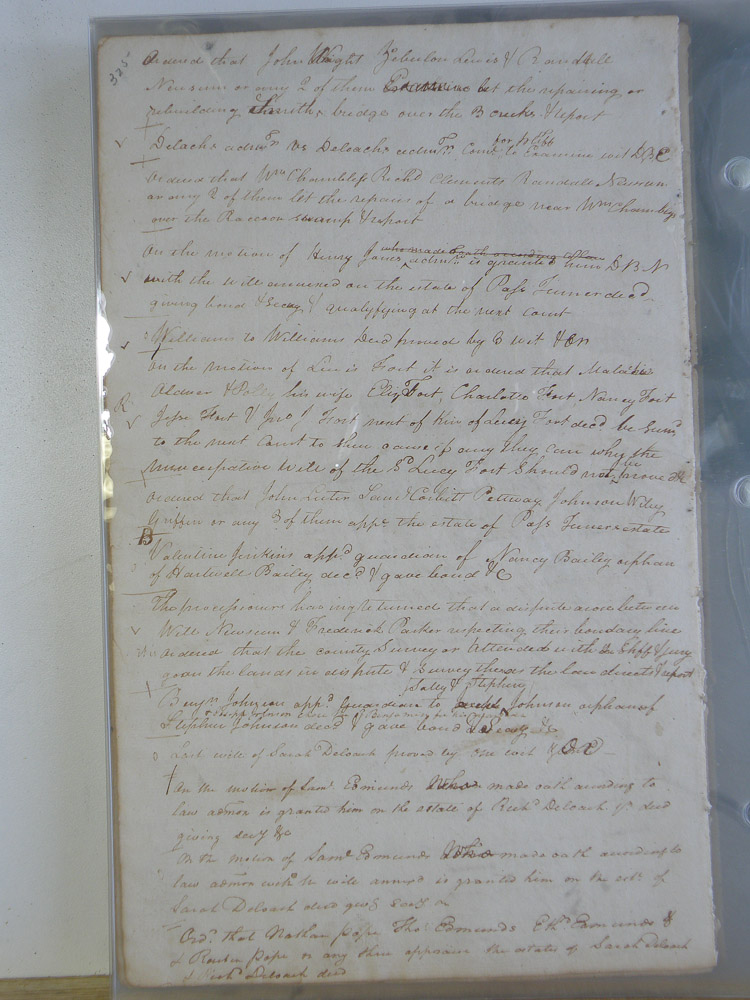 325
Ordered that John Wright Zebulon Lewis & Randall
Newsum or any 2 of them let the repairing or
rebuilding Smiths bridge over the B creek & report
for pltff
Delochs admrs vs Delochs admrs Comn to Examine wit DBE
Ordered that Wm Chambless Richd Clements Randall Newsum
or any 2 of them let the repairs of a bridge near Wm Chambless
over the Raccoon swamp & report
who made oath according to law
On the motion of Henry Jones admn is granted him D B N
with the will annexed on the estate of Pass Turner decd
giving bond & secy & qualifying at the next court
Williams to Williams Deed proved by 2 wit & Or
On the motion of Lewis Fort it is ordered that Malachi
& Polly his wife Eliz Fort, Charlotte Fort Nancy Fort
R
Jesse Fort & Jno Fort next of Kin of Lucy Fort decd be Sumd
to the next Court to shew cause if any they can why the
nuncupative will of the Sd Lucy Fort should not be prove &c
Ordered that John Saml Corbitt Pettway Johnson Wiley
Griffin or any 3 of them appr the estate of Pass Turners estate
B
Valentine Jenkins appd guardian of Nancy Bailey orphan
of Hartwell Bailey decd & gave bond &c
The processioners having returned that a dispute arose between
Will Newsum & Frederick Parker respecting their boundary line
ordered that the county Surveyor attended with the Shff & jury
go on the lands in dispute & survey the as the law directs & report
Sally & Stephen
Benjn Johnson appd Guardian to Johnson orphan of
Stephen Johnson decd & gave bond & Secy &c
Last will of Sarah Deloach proved by one wit & O C
On the motion of Saml Edmunds who made oath according to
law admon is granted him on the estate of Richd Deloach Jr decd
giving secy &c
On the motion of Saml Edmunds who made oath according to
law admon with the will annexd is granted him on the este of
Sarah Deloach decd givg secy
Ordd that Nathan Pope Thos Edmunds Ethd Edmunds &
& Reuben Pope or any three appraise the estates of Sarah Deloach
& Richd Deloach decd